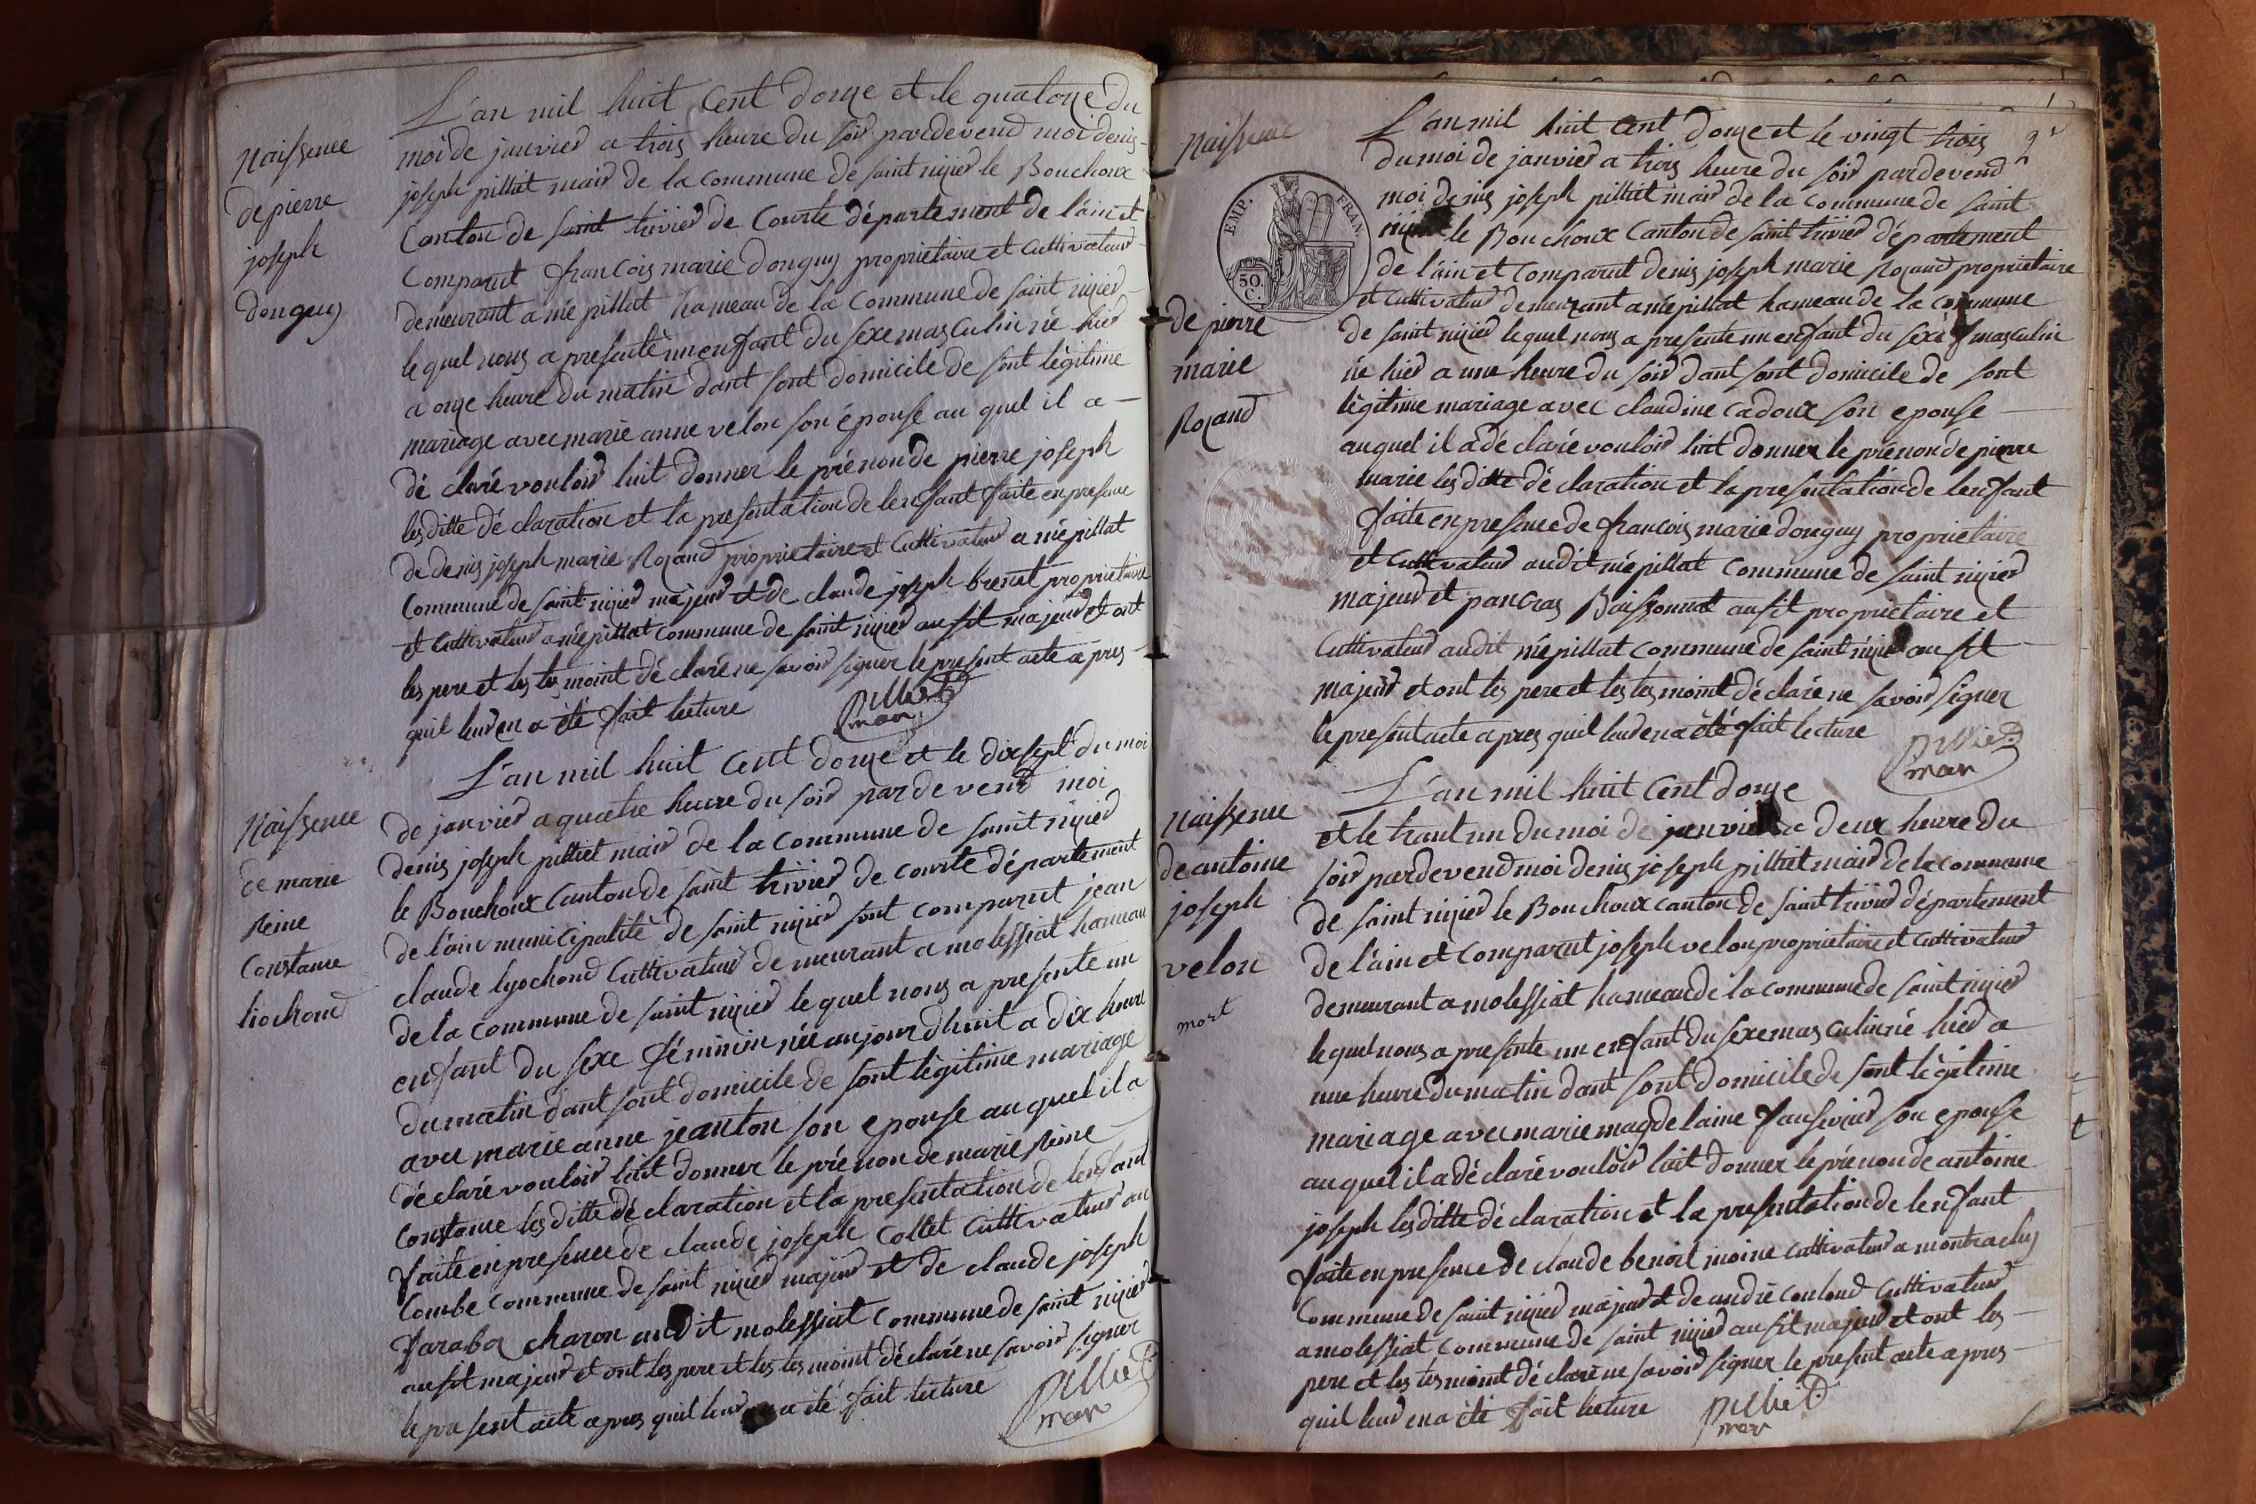 Naissence
de pierre
joseph
donguy
L'an mil huit cent douze et le quatorze du
moi de janvier a trois heure du soir pardevend moi denis
joseph pilliet mair de la commune de saint nizier le Bouchoux
Canton de saint trivier de Courte département de l'ain et
Comparut francois marie donguy proprietaire et Cultivateur
demeurant a mépillat hameau de la Commune de saint nizier
lequel nous a presenté un enfant du sexe masculin né hier
a onze heure du matin dant sont domicile de sont légitime
mariage avec marie anne velon son épouse au quel il a
dé claré vouloir luit donner le prénon de pierre joseph
les ditte dé claration et la presentation de lenfant faite en presence
de denis joseph marie Rozand proprietaire et Cultivateur a mépillat
Commune de saint nizier majeur et de claude joseph brenet proprietaire
et Cultivateur a mépillat commune de saint nizier ausit majeur et ont
les pere et les tes moint dé claré ne savoir signer le present acte apres
quil leur en a été fait lecture
pilliet
mair
Naissence
de marie
Reine
Constance
liochond
L'an mil huit cent douze et le dix sept du moi
de janvier a quatre heure du soir par de vend moi
denis joseph pilliet mair de la commune de saint nizier
le Bouchoux Canton de saint trivier de courte département
de l'ain municipalité de saint nizier sont comparut jean
claude lyochond Cultivateur de meurant a molessiat hameau
de la commune de saint nizier lequel nous a presente un
enfant du sexe féminin née aujourdhuit a dix heure
du matin dant sont domicile de sont légitime mariage
avec marie anne jeanton son epouse au quel il a
déclaré vouloir luit donner le prénon de marie Reine
Constance les ditte dé claration et la presentation de lenfant
faite en presence de claude joseph Collet Cultivateur au
Combe commune de saint nizier majeur et de claude joseph
faraboz charon audit molessiat commune de saint nizier
ausit majeur et ont les pere et les tes moint déclaré ne savoir signer
le present acte apres quil leur en a été fait lecture
pilliet
mair
2e
Naissence
EMP. FRAN.
50 C.
de pierre
marie
Rozand
L'an mil huit cent douze et le vingt trois
du moi de janvier a trois heure du soir pardevend
moi denis joseph pilliet mair de la commune de saint
nizier le Bouchoux Canton de saint trivier département
de l'ain et comparut denis joseph marie Rozand proprietaire
et Cultivateur demeurant a mépillat hameau de la commune
de saint nizier lequel nous a presente un enfant du sexe masculin
né hier a une heure du soir dant sont domicile de sont
légitime mariage avec claudine cadoux son epouse
au quel il a dé claré vouloir luit donner le prénon de pierre
marie les ditte dé claration et la presentation de lenfant
faite en presence de francois marie donguy proprietaire
et Cultivateur audit mépillat commune de saint nizier
majeur et pancras Boissonnet ausit proprietaire et
Cultivateur audit mépillat commune de saint nizier ausit
majeur et ont les pere et les tes moint dé claré ne savoir signer
le present acte apres quil leur en a été fait lecture
pilliet
mair
Naissence
de antoine
joseph
velon
mort
L'an mil huit cent douze
et le trant un du moi de janvier a deux heure du
soir pardevend moi denis joseph pilliet mair de la commune
de saint nizier le Bouchoux canton de saint trivier département
de l'ain et comparut joseph velon proprietaire et Cultivateur
demeurant a molessiat hameau de la commune de saint nizier
lequel nous a presente un enfant du sexe mas culin né hier a
une heure du matin dant sont domicile de sont légitime
mariage avec marie magdelaine fauscrier son epouse
au quel il a déclaré vouloir luit donner le prénon de antoine
joseph les ditte dé claration et la presentation de lenfant
faite en presence de claude benoit moine Cultivateur a montrachy
Commune de saint nizier majeur et de andré couloud Cultivateur
a molessiat commune de saint nizier ausit majeur et ont les
pere et les tes moint dé claré ne savoir signer le present acte apres
quil leur en a été fait lecture
pilliet
mair